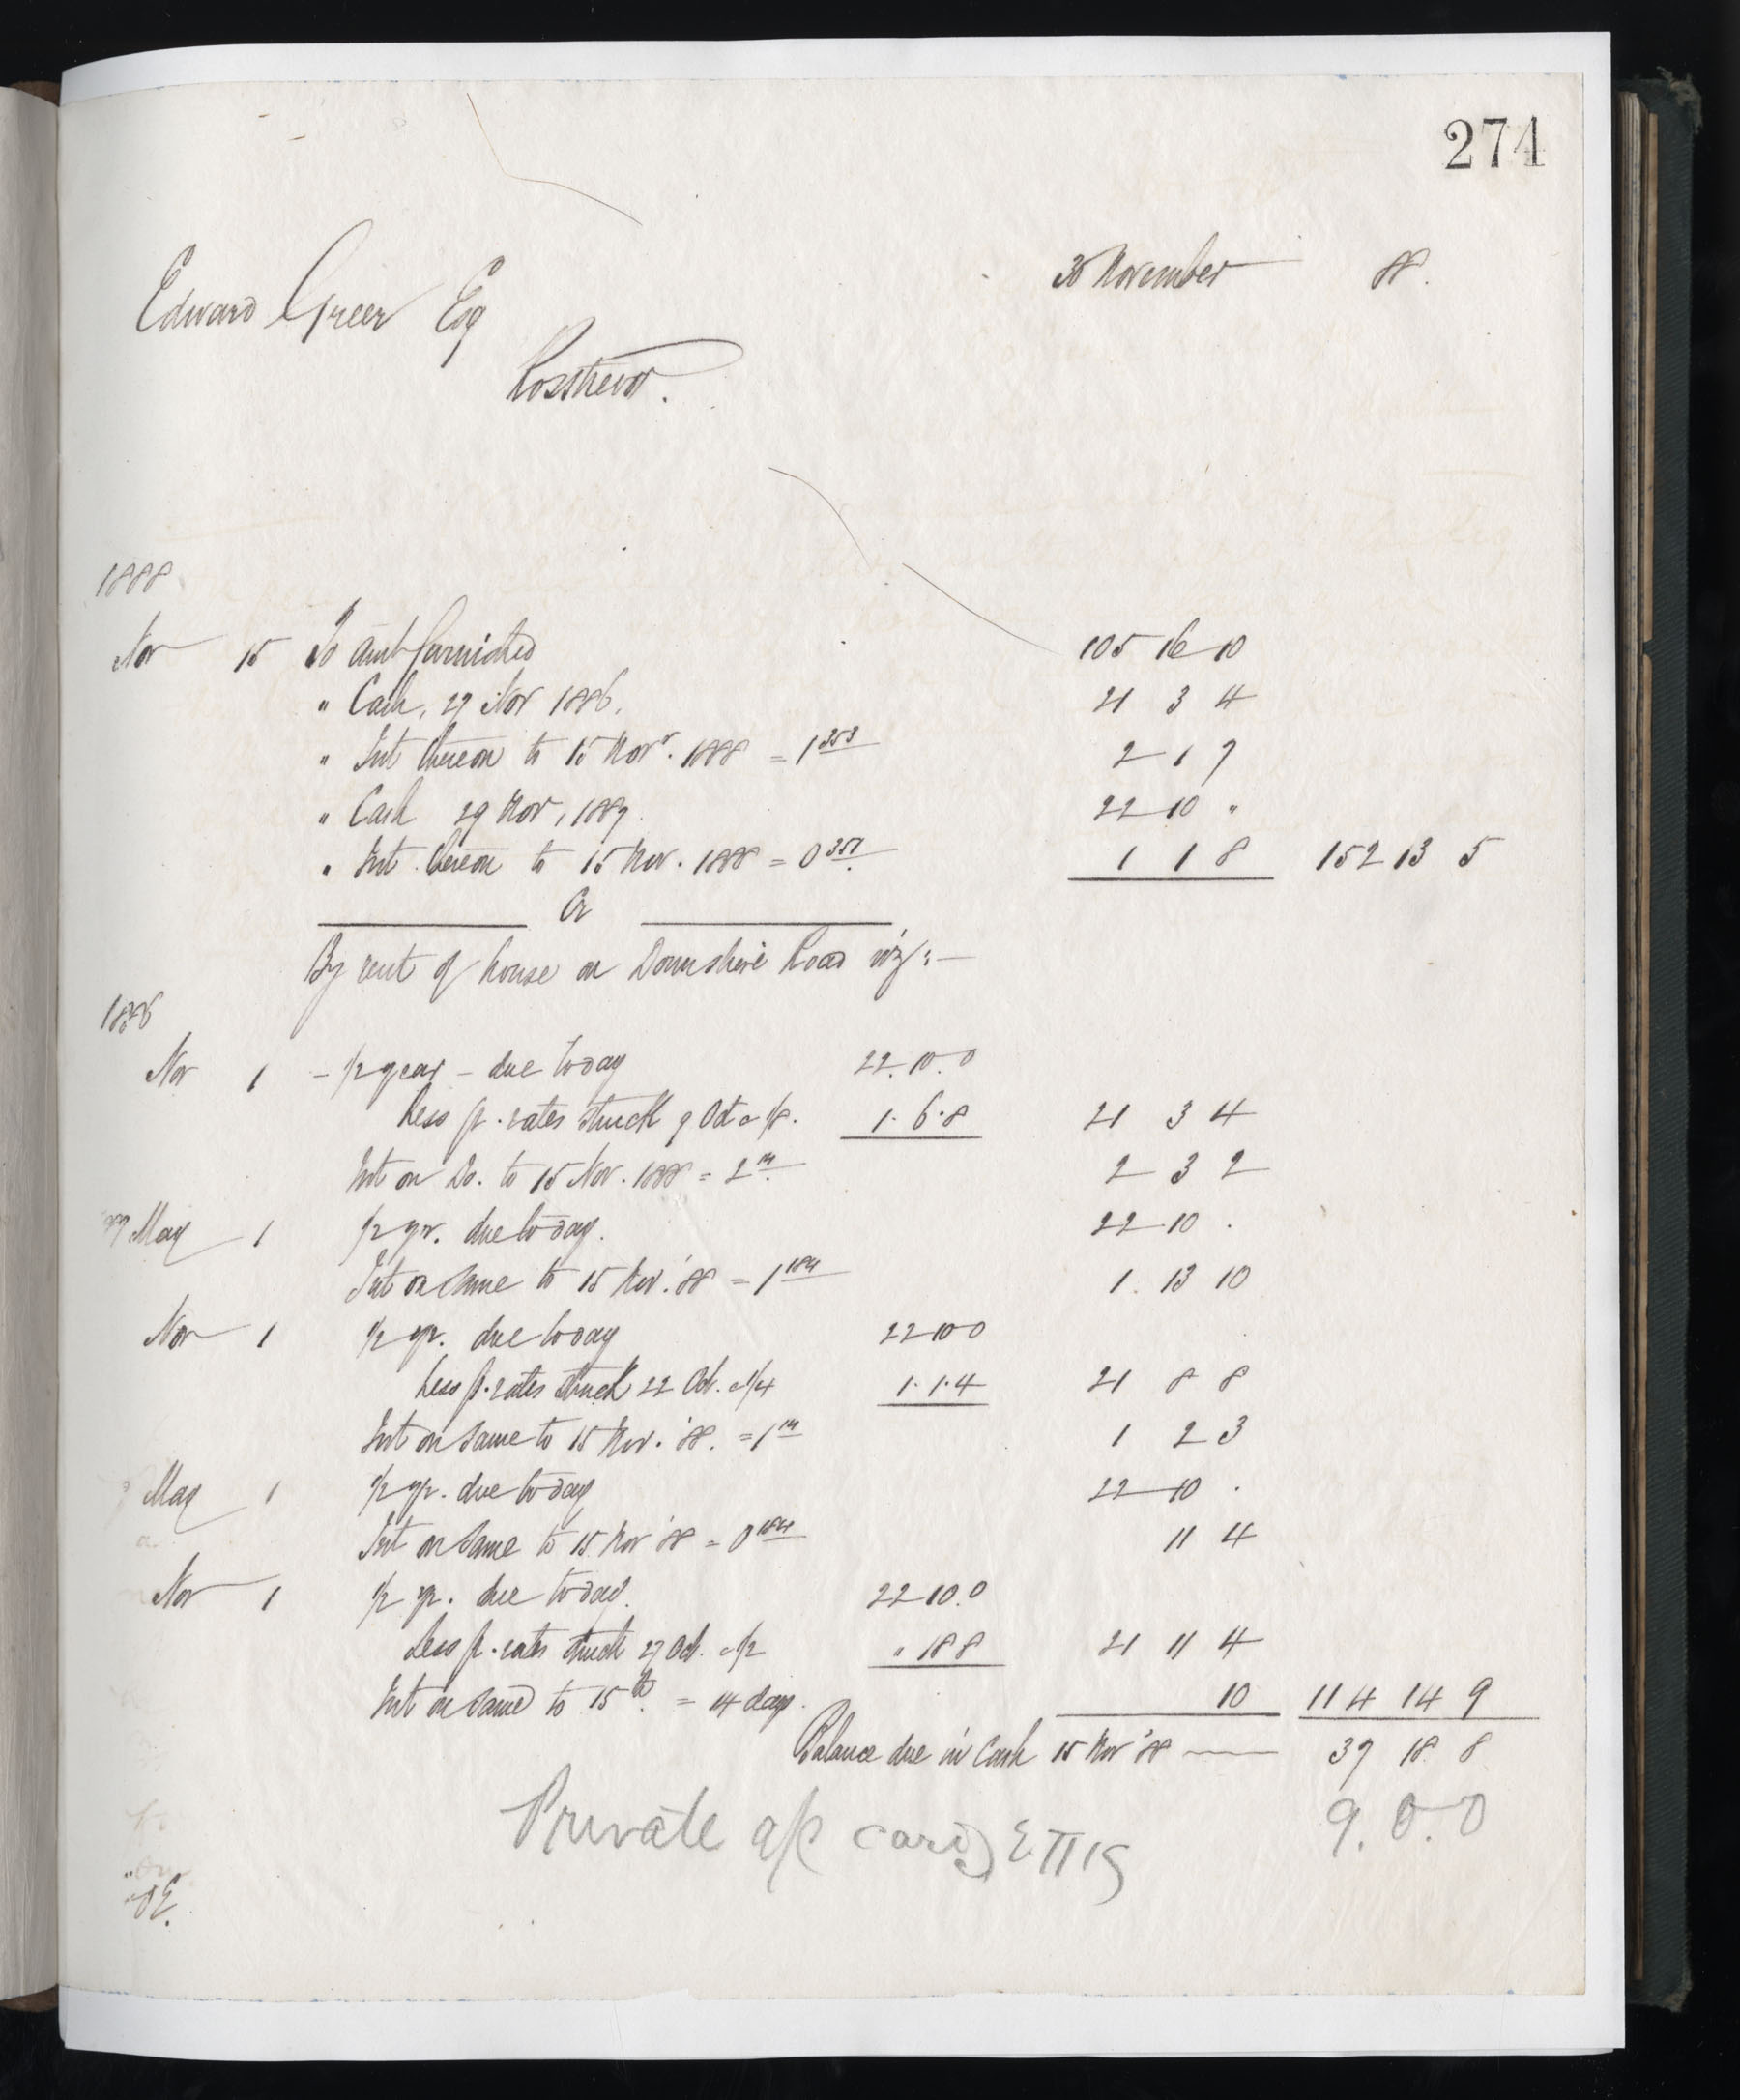 274
30 November 88.
Edward Greer Esq
Rosstrevor.
1888
Nov 15 To amt furnished 105 16 10
" Cash, 27 Nov 1886. 21 3 4
" Int thereon to 15 Novr. 1888 = 1 353 2 1 7
" Cash 29 Nov, 1887. 22 10 "
" Int. thereon to 15 Nov. 1888 = 0 351 1 1 8 152 13 5
Cr
By rent of house on Downshire Road viz:—
1886
Nov 1 - 1/2 year - due today 22.10.0
Less p. rates struck 9 Oct @ 1/8. 1.6.8 21 3 4
Int on Do. to 15 Nov. 1888 = 2 14 2 3 2
87 May 1 1/2 yr. due today. 22 10 .
Int on same to 15 Nov. '88 = 1 184 1. 13 10
Nov 1 1/2 yr. due today 22 10 0
Less p. rates struck 22 Oct. @ 1/4 1.1.4 21 8 8
Int on same to 15 Nov. '88. = 1 14 1 2 3
May 1 1/2 yr. due today 22 10 .
Int on same to 15 Nov '88 = 0 184 11 4
Nov 1 1/2 yr. due today. 22 10.0
Less p. rates struck 27 Oct. @ 1/2 " 18 8 21 11 4
Int on same to 15th. = 14 days. 10 114 14 9
Balance due in Cash 15 Nov '88 — 37 18 8
Private a/c card 9.0.0